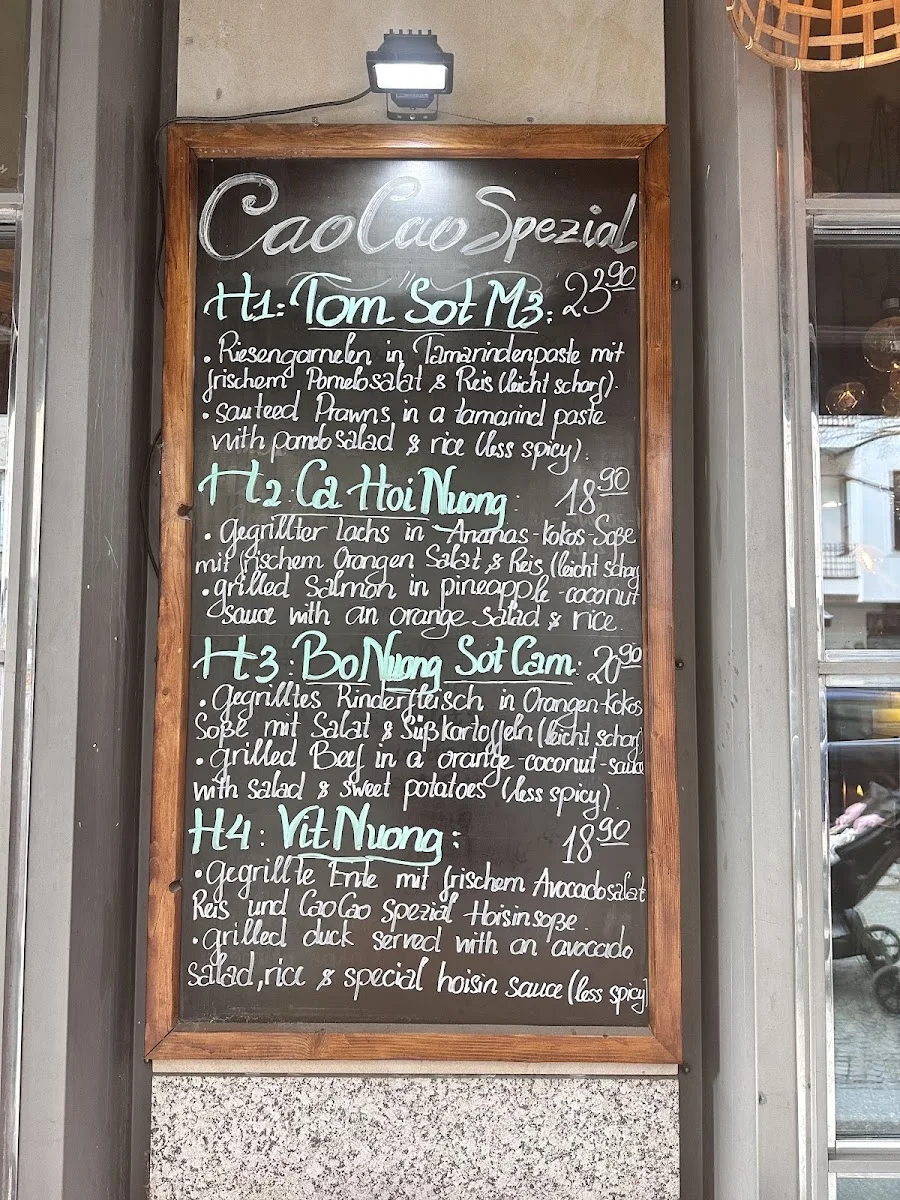 CaoCao Spezial
H1: Tom Sot M3: 23 90
• Riesengarnelen in Tamarindenpaste mit
frischem Pomelosalat & Reis (leicht scharf).
• sauteed Prawns in a tamarind paste
with pomelo salad & rice (less spicy).
H2: Ca Hoi Nuong 18 90
• Gegrillter Lachs in Ananas-Kokos-Soße
mit frischem Orangen Salat & Reis (leicht scharf
• grilled Salmon in pineapple-coconut
sauce with an orange salad & rice.
H3: Bo Nuong Sot Cam: 20 90
• Gegrilltes Rinderfleisch in Orangen-Kokos
Soße mit Salat & Süßkartoffeln (leicht scharf
• grilled Beef in a orange-coconut-sauce
with salad & sweet potatoes (less spicy).
H4: Vit Nuong: 18 90
• Gegrillte Ente mit frischem Avocadosalat
Reis und CaoCao Spezial Hoisinsoße.
• grilled duck served with an avocado
salad, rice & special hoisin sauce (less spicy)